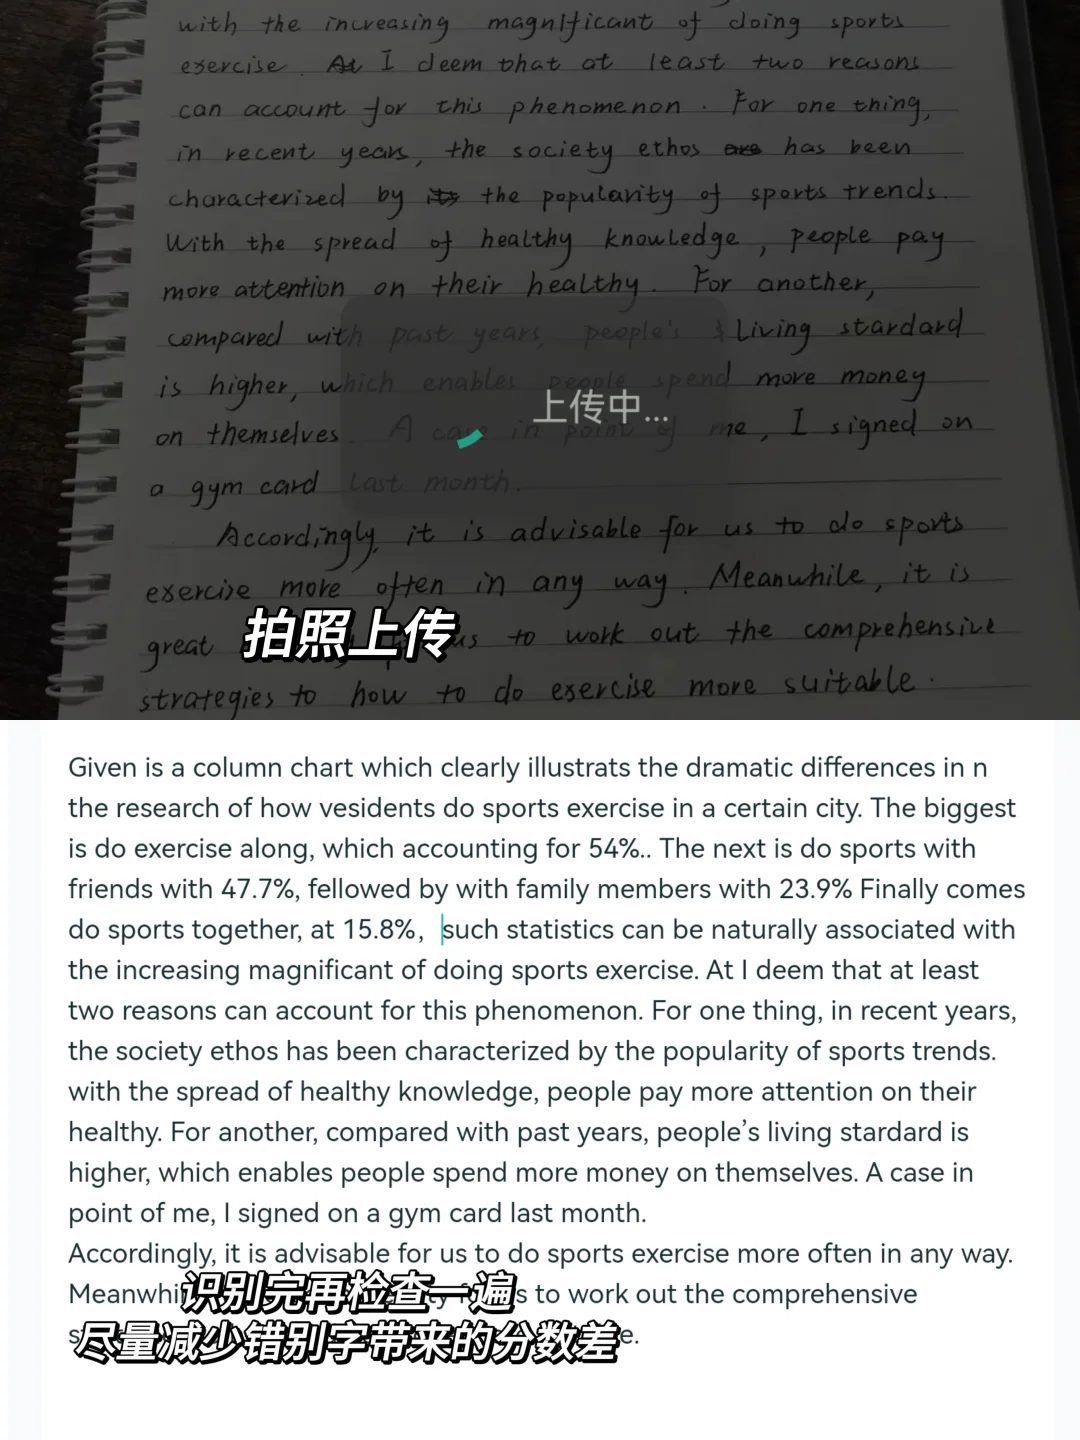 with the increasing magnificant of doing sports
exercise. At I deem that at least two reasons
can account for this phenomenon. For one thing,
in recent years, the society ethos are has been
characterized by its the popularity of sports trends.
With the spread of healthy knowledge, people pay
more attention on their healthy. For another,
compared with past years, people's living stardard
is higher, which enables people spend more money
上传中...
on themselves. A case in point of me, I signed on
a gym card last month.
Accordingly, it is advisable for us to do sports
exercise more often in any way. Meanwhile, it is
拍照上传
great us to work out the comprehensive
strategies to how to do exercise more suitable.
Given is a column chart which clearly illustrats the dramatic differences in n
the research of how vesidents do sports exercise in a certain city. The biggest
is do exercise along, which accounting for 54%.. The next is do sports with
friends with 47.7%, fellowed by with family members with 23.9% Finally comes
do sports together, at 15.8%, such statistics can be naturally associated with
the increasing magnificant of doing sports exercise. At I deem that at least
two reasons can account for this phenomenon. For one thing, in recent years,
the society ethos has been characterized by the popularity of sports trends.
with the spread of healthy knowledge, people pay more attention on their
healthy. For another, compared with past years, people's living stardard is
higher, which enables people spend more money on themselves. A case in
point of me, I signed on a gym card last month.
Accordingly, it is advisable for us to do sports exercise more often in any way.
Meanwhi to work out the comprehensive
识别完再检查一遍
尽量减少错别字带来的分数差